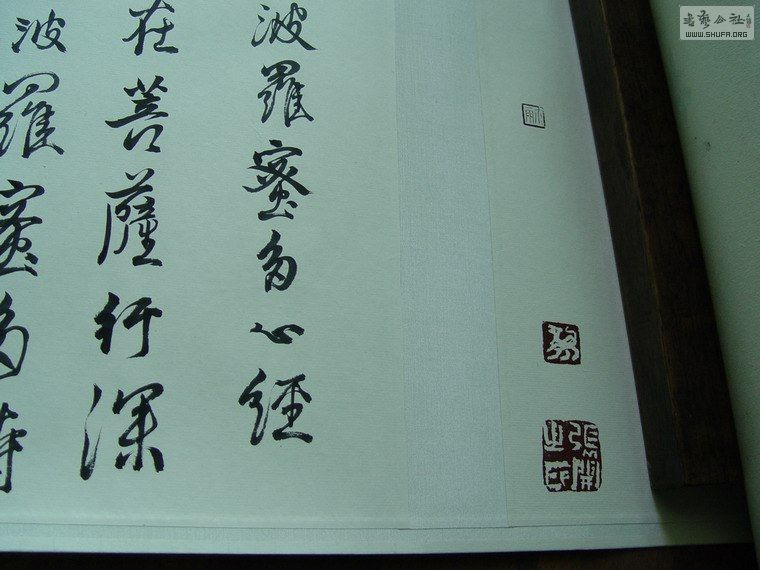 波羅蜜多心經
在菩薩行深
波羅蜜多時
張開之印
書藝公社
WWW.SHUFA.ORG